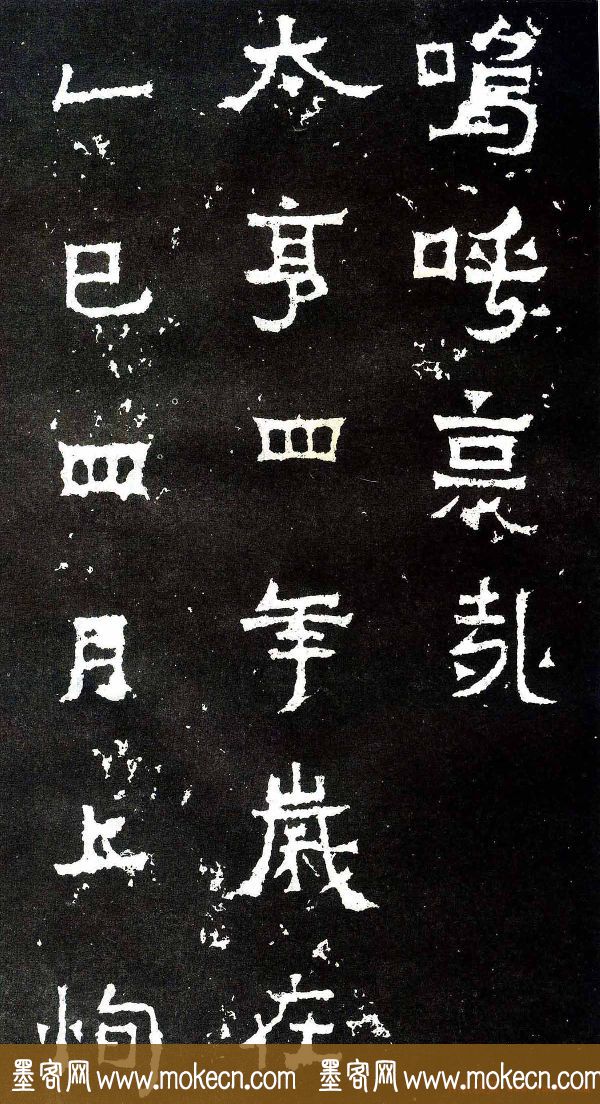 嗚呼哀哉
太亨四年歲在
乙巳四月上恂
墨客网 www.mokecn.com 墨客网 www.mokecn.com